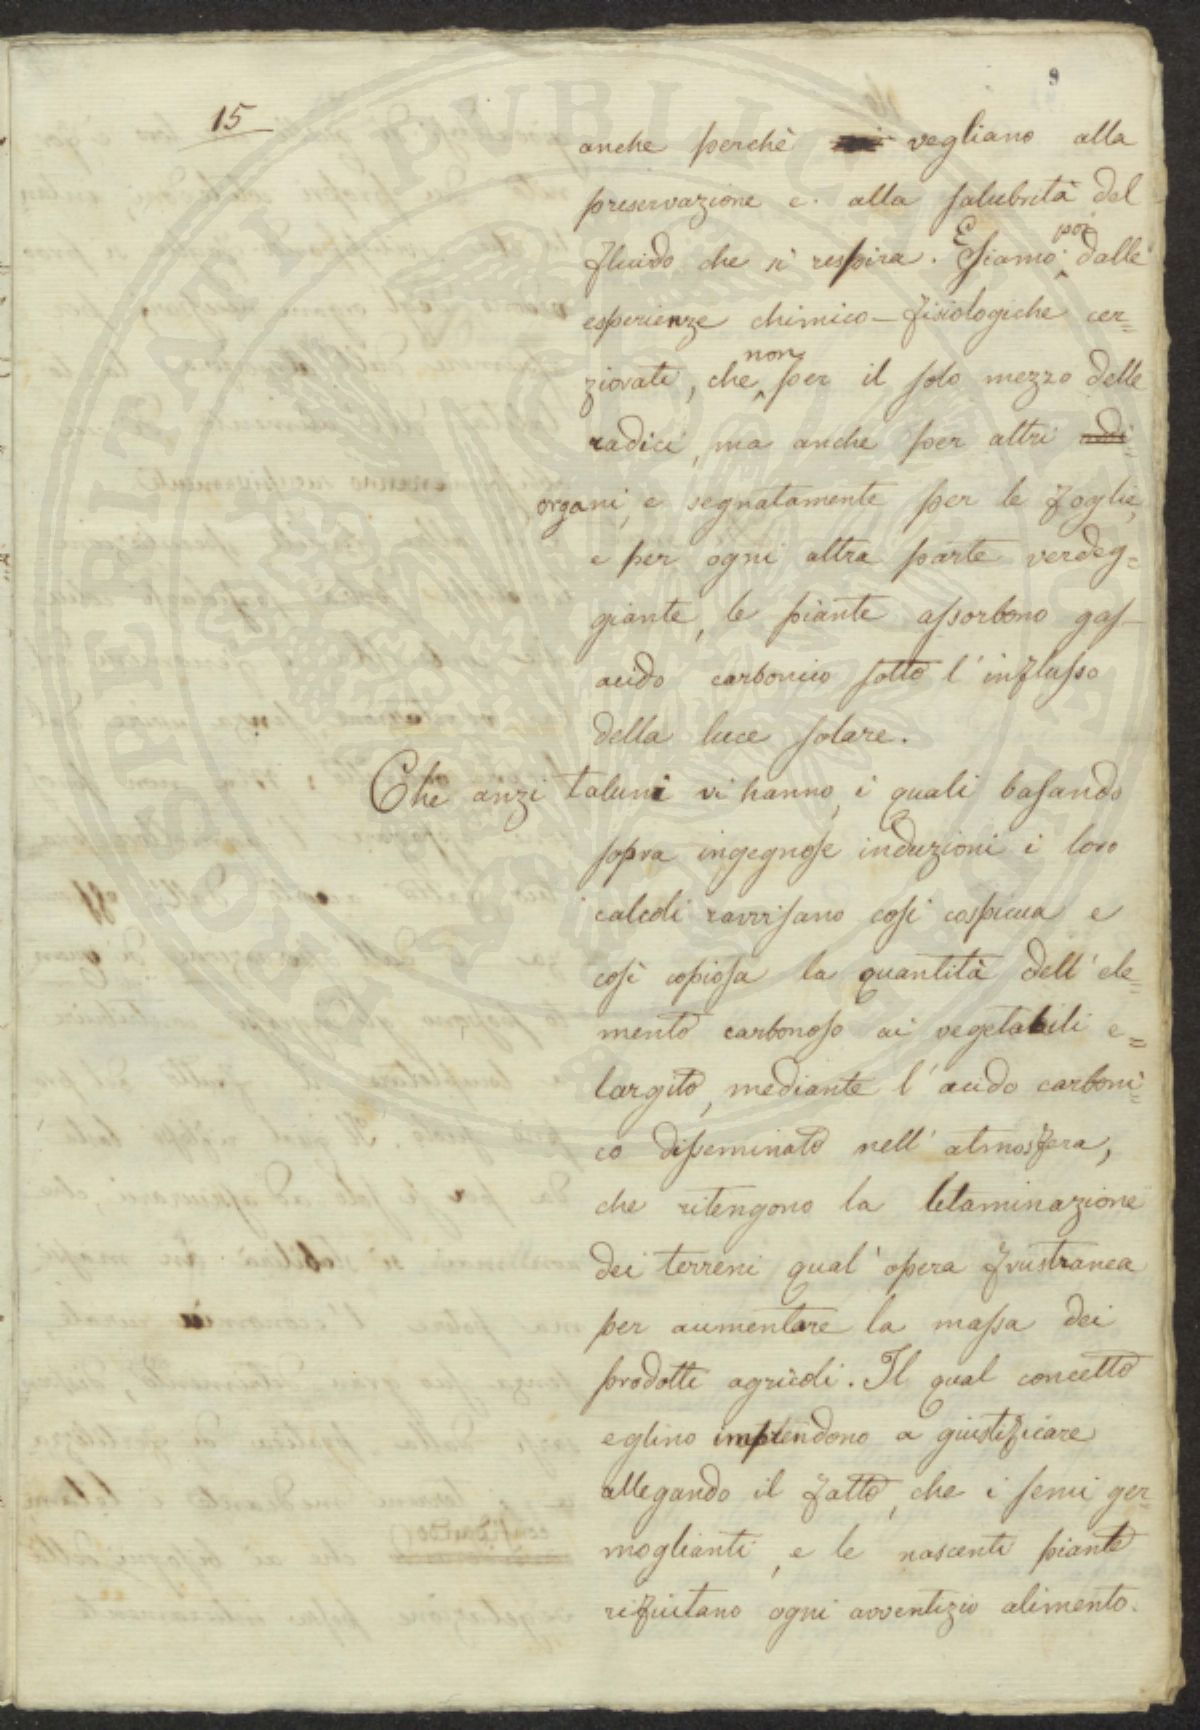 9
15
anche perchè vegliano alla
preservazione e alla salubrità del
fluido che si respira. E siamo poi dalle
esperienze chimico-fisiologiche cer=
ziorati, che non per il solo mezzo delle
radici, ma anche per altri
organi, e segnatamente per le foglie,
e per ogni altra parte verdeg=
giante, le piante assorbono gas-
acido carbonico sotto l'influsso
della luce solare.
Che anzi taluni vi hanno, i quali basando
sopra ingegnose induzioni i loro
calcoli ravvisano così cospicua e
così copiosa la quantità dell'ele=
mento carbonoso ai vegetabili e=
largito, mediante l'acido carboni=
co disseminato nell'atmosfera,
che ritengono la letaminazione
dei terreni qual'opera frustranea
per aumentare la massa dei
prodotti agricoli. Il qual concetto
eglino imprendono a giustificare
allegando il fatto, che i semi ger=
moglianti, e le nascenti piante
rifiutano ogni avventizio alimento.